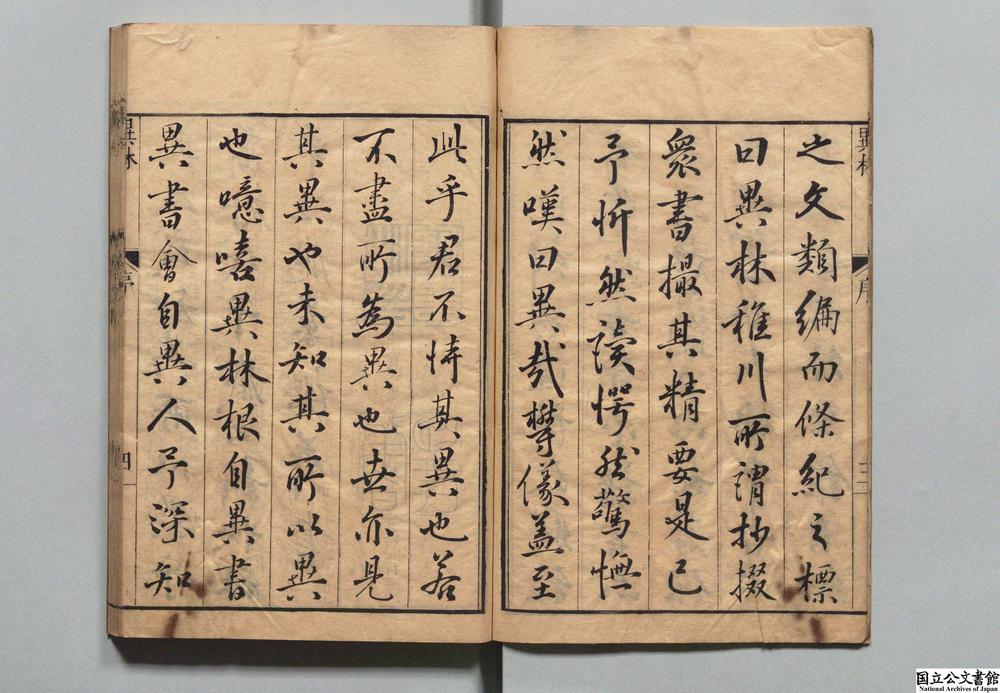 異林
序
三
之文類編而條紀之標
曰異林稚川所謂抄掇
衆書撮其精要是已
予忻然讀愕然驚憮
然嘆曰異哉欝儀盖至
此乎君不恃其異也若
不盡所為異也世亦見
其異也未知其所以異
也噫嘻異林根自異書
異書會自異人予深知
異林
序
四
国立公文書館
National Archives of Japan